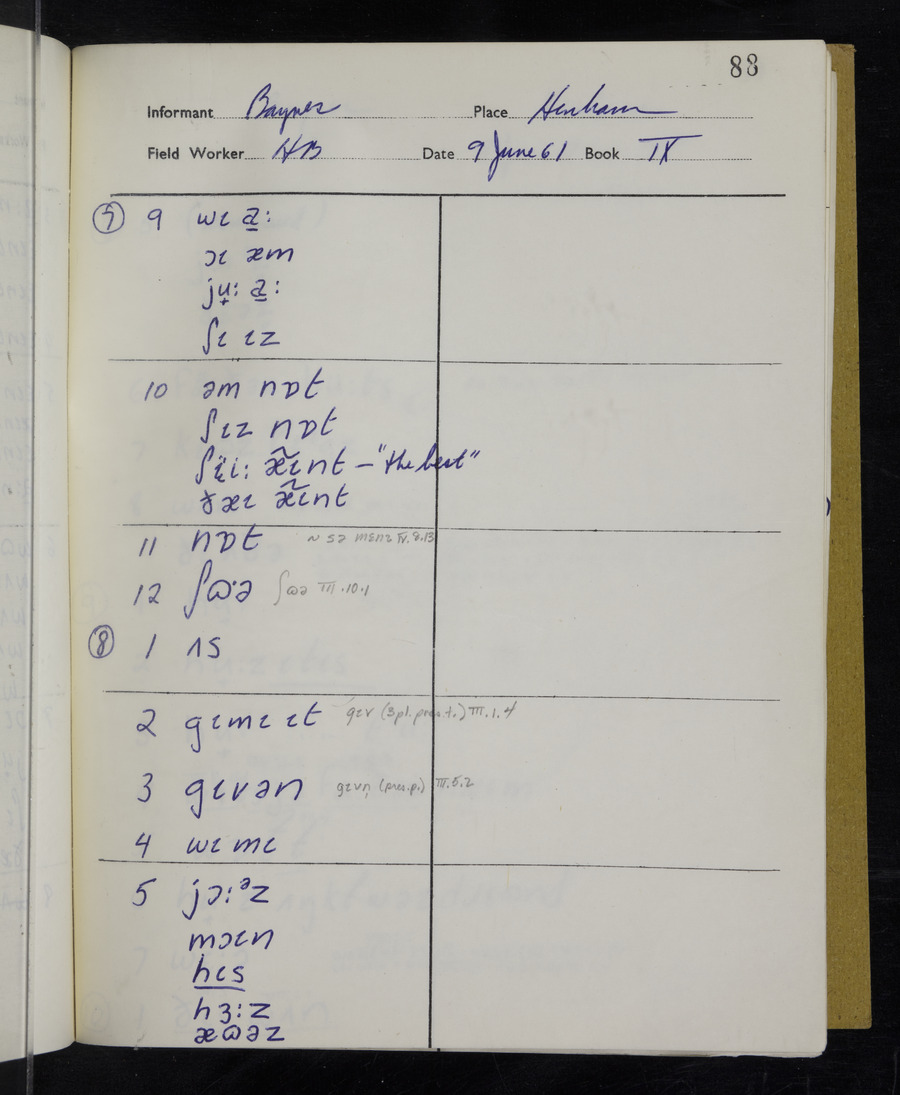 88
Informant Baynes Place Henham
Field Worker HB Date 9 June 61 Book IX
⑦ 9 wɩ a̠:
ɔɩ æm
ju̟: a̠:
ʃɩ ɩz
10 əm nɒt
ʃɩz nɒt
ʃɩ̈i: æ̃ɩnt – "the best"
ðæɩ æ̃ɩnt
11 nɒt ~ sə mɛnɩ IV.8.13
12 ʃɷ·ə ʃɷə III.10.1
⑧ 1 ʌs
2 gɩmɩ ɩt gɩv (3 pl. pres. t.) III.1.4
3 gɩvən gɩvn̩ (pres.p.) III.5.2
4 wɩ mɩ
5 jɔ:ᵊz
mɔɩn
hɩs
hɜ:z
æɷəz